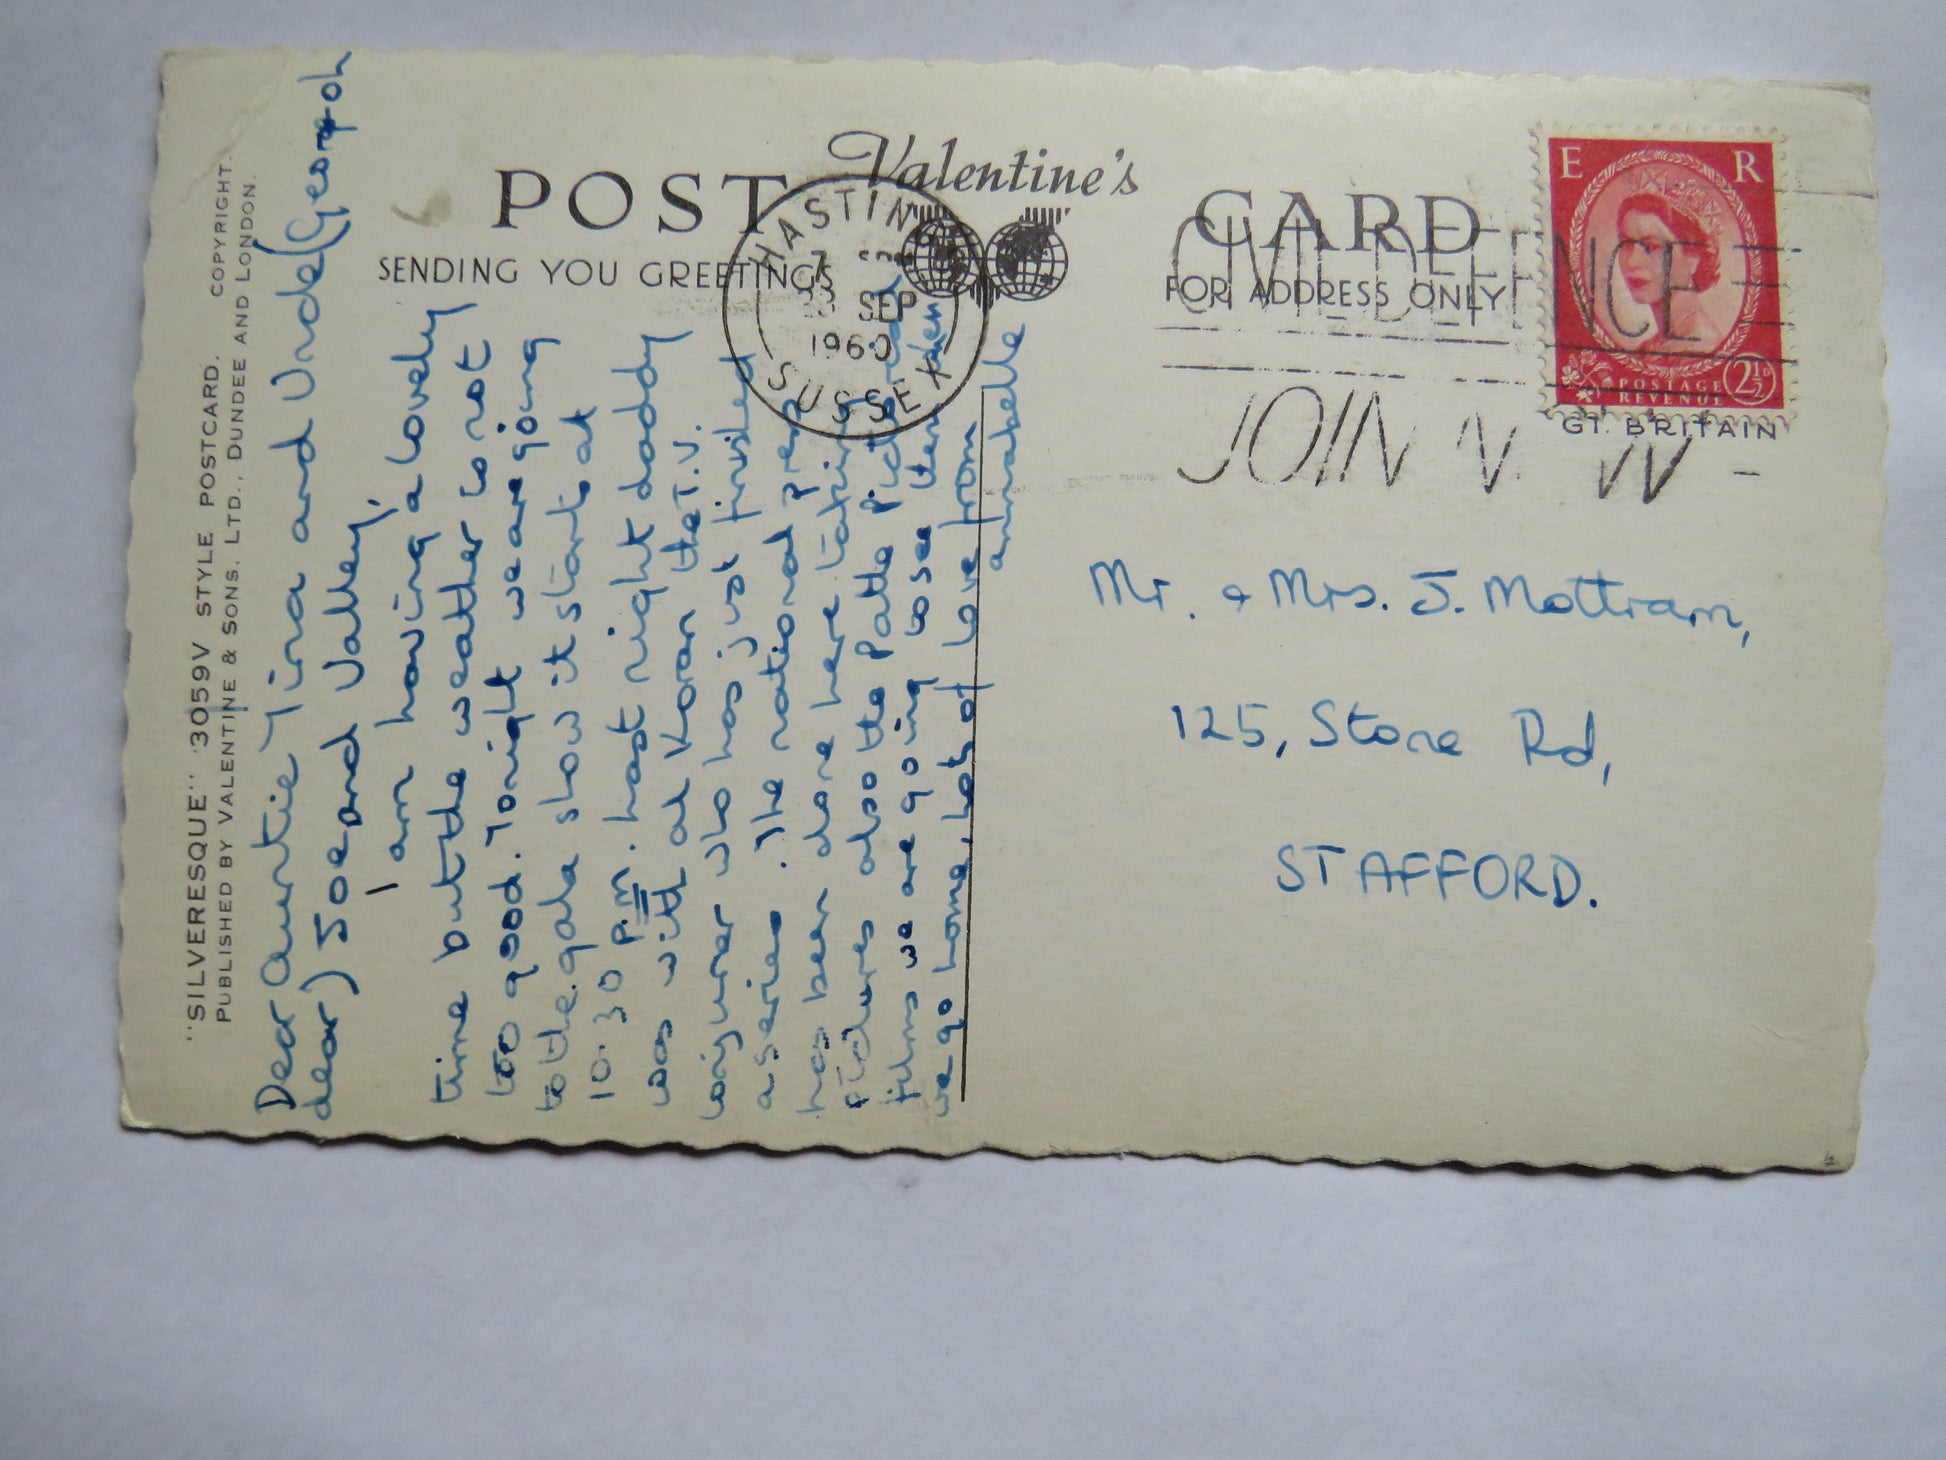 "SILVERESQUE" '3059V STYLE POSTCARD. COPYRIGHT.
PUBLISHED BY VALENTINE & SONS, LTD., DUNDEE AND LONDON.
POST CARD
Valentine's
SENDING YOU GREETINGS
FOR ADDRESS ONLY
HASTINGS
7
SEP
1960
SUSSEX
CIVIL DEFENCE
JOIN NOW
E R
POSTAGE
REVENUE
2½D
GT. BRITAIN
Dear Auntie Tina and Uncle (George oh
dear) Joe and Valley,
I am having a lovely
time but the weather is not
too good. Tonight we are going
to the gala show it starts at
10.30 p.m. Last night daddy
was with at Koran the T.V.
conjurer who has just finished
a series. The national press
has been done here taking
pictures also the Pathe Pictorial
films we are going to see them when
we go home, lots of love from
annabelle
Mr. & Mrs. J. Mottram,
125, Stone Rd,
STAFFORD.